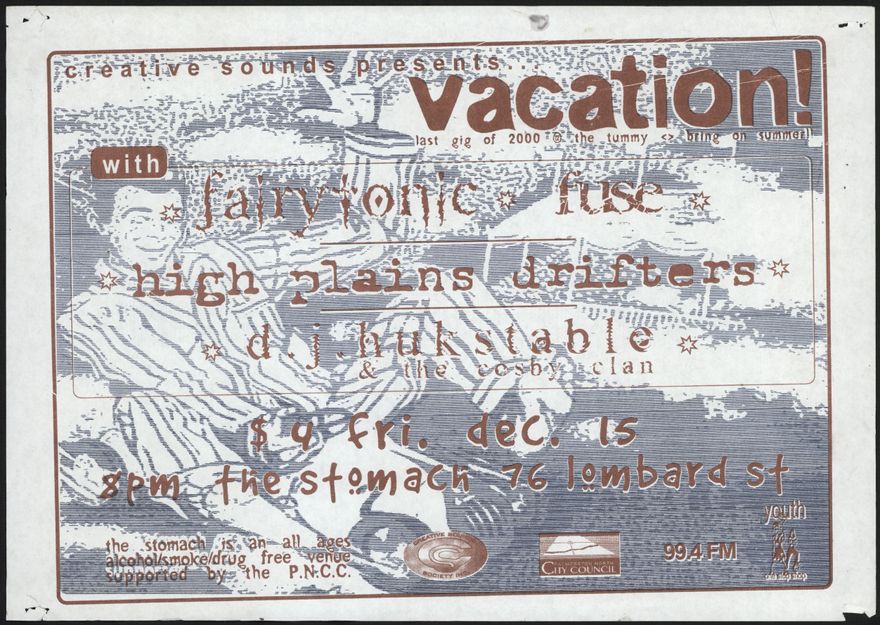 creative sounds presents...
vacation!
last gig of 2000 @ the tummy <> bring on summer!!
with
fairytonic * fuse
high plains drifters
d.j.hukstable
& the cosby clan
$4 fri. dec. 15
8pm the stomach 76 lombard st
the stomach is an all ages
alcohol/smoke/drug free venue
supported by the P.N.C.C.
CREATIVE SOUNDS
SOCIETY INC.
PALMERSTON NORTH
CITY COUNCIL
99.4 FM
youth
one stop shop